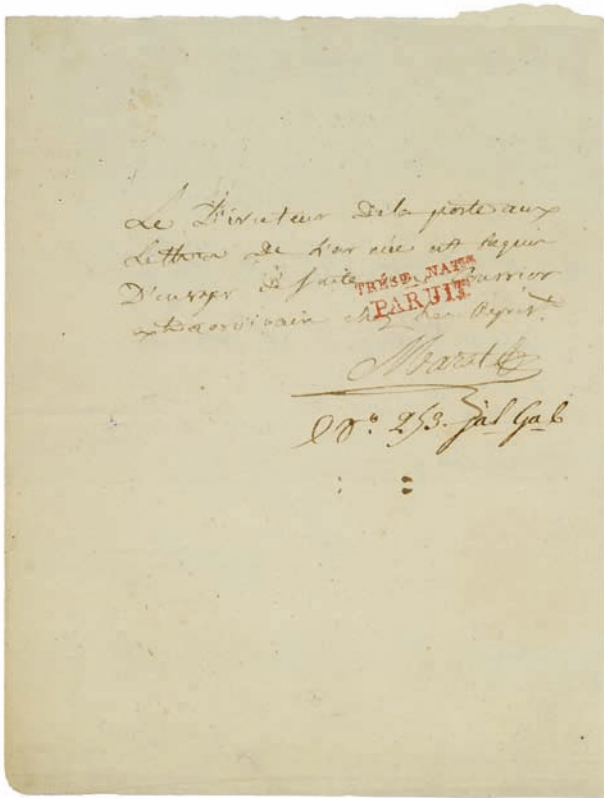 Le Directeur De la poste aux
Lettres De L'armée est requis
D'envoyer de suite Courrier
extraordinaire chez
TRÉSO. NATLE
PARUIT
f.º 253. jal Gab